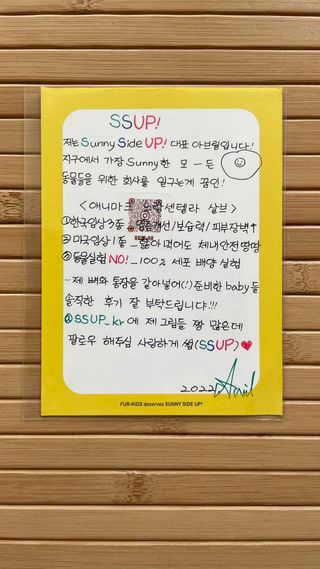 SSUP!
저는 Sunny Side UP! 대표 아브릴입니다!
지구에서 가장 Sunny한 모-든
동물들을 위한 회사를 일구는게 꿈인!
<애니마크 노락센텔라 살브>
①한국임상3종 _ 염증개선/보습력/피부장벽↑
②미국임상1종 _ 핥아먹어도 체내안전땅땅
③동물실험 NO! _ 100% 세포 배양 실험
... 제 뼈와 통장을 갈아넣어(!) 준비한 baby들
솔직한 후기 잘 부탁드립니댜!!!
@SSUP_kr 에 제 그림들 짱 많은데
팔로우 해주심 사랑하게 썹(SSUP)♥
2022 Avril
FUR-KIDS deserves SUNNY SIDE UP!